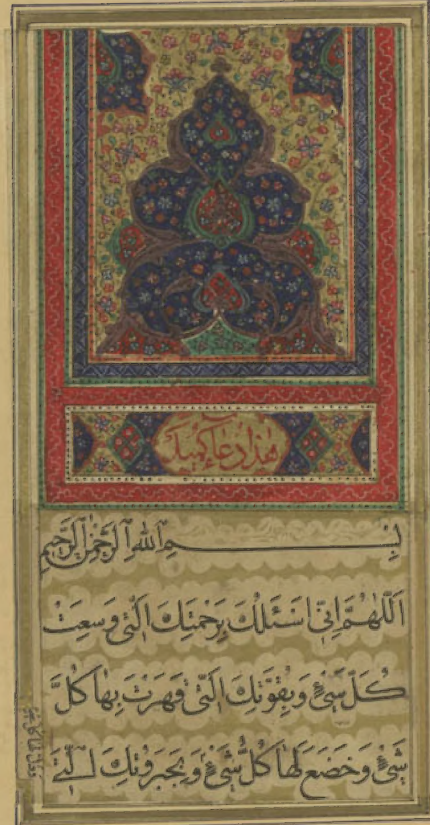 هذا دعاء كميل
بِسْمِ اللهِ الرَّحْمٰنِ الرَّحِيمِ
اَللّٰهُمَّ اِنّی اَسْئَلُكَ بِرَحْمَتِكَ الَّتی وَسِعَتْ
كُلَّ شَیْءٍ وَبِقُوَّتِكَ الَّتی قَهَرْتَ بِهَا كُلَّ
شَیْءٍ وَخَضَعَ لَهَا كُلُّ شَیْءٍ وَبِجَبَرُوتِكَ الَّتی